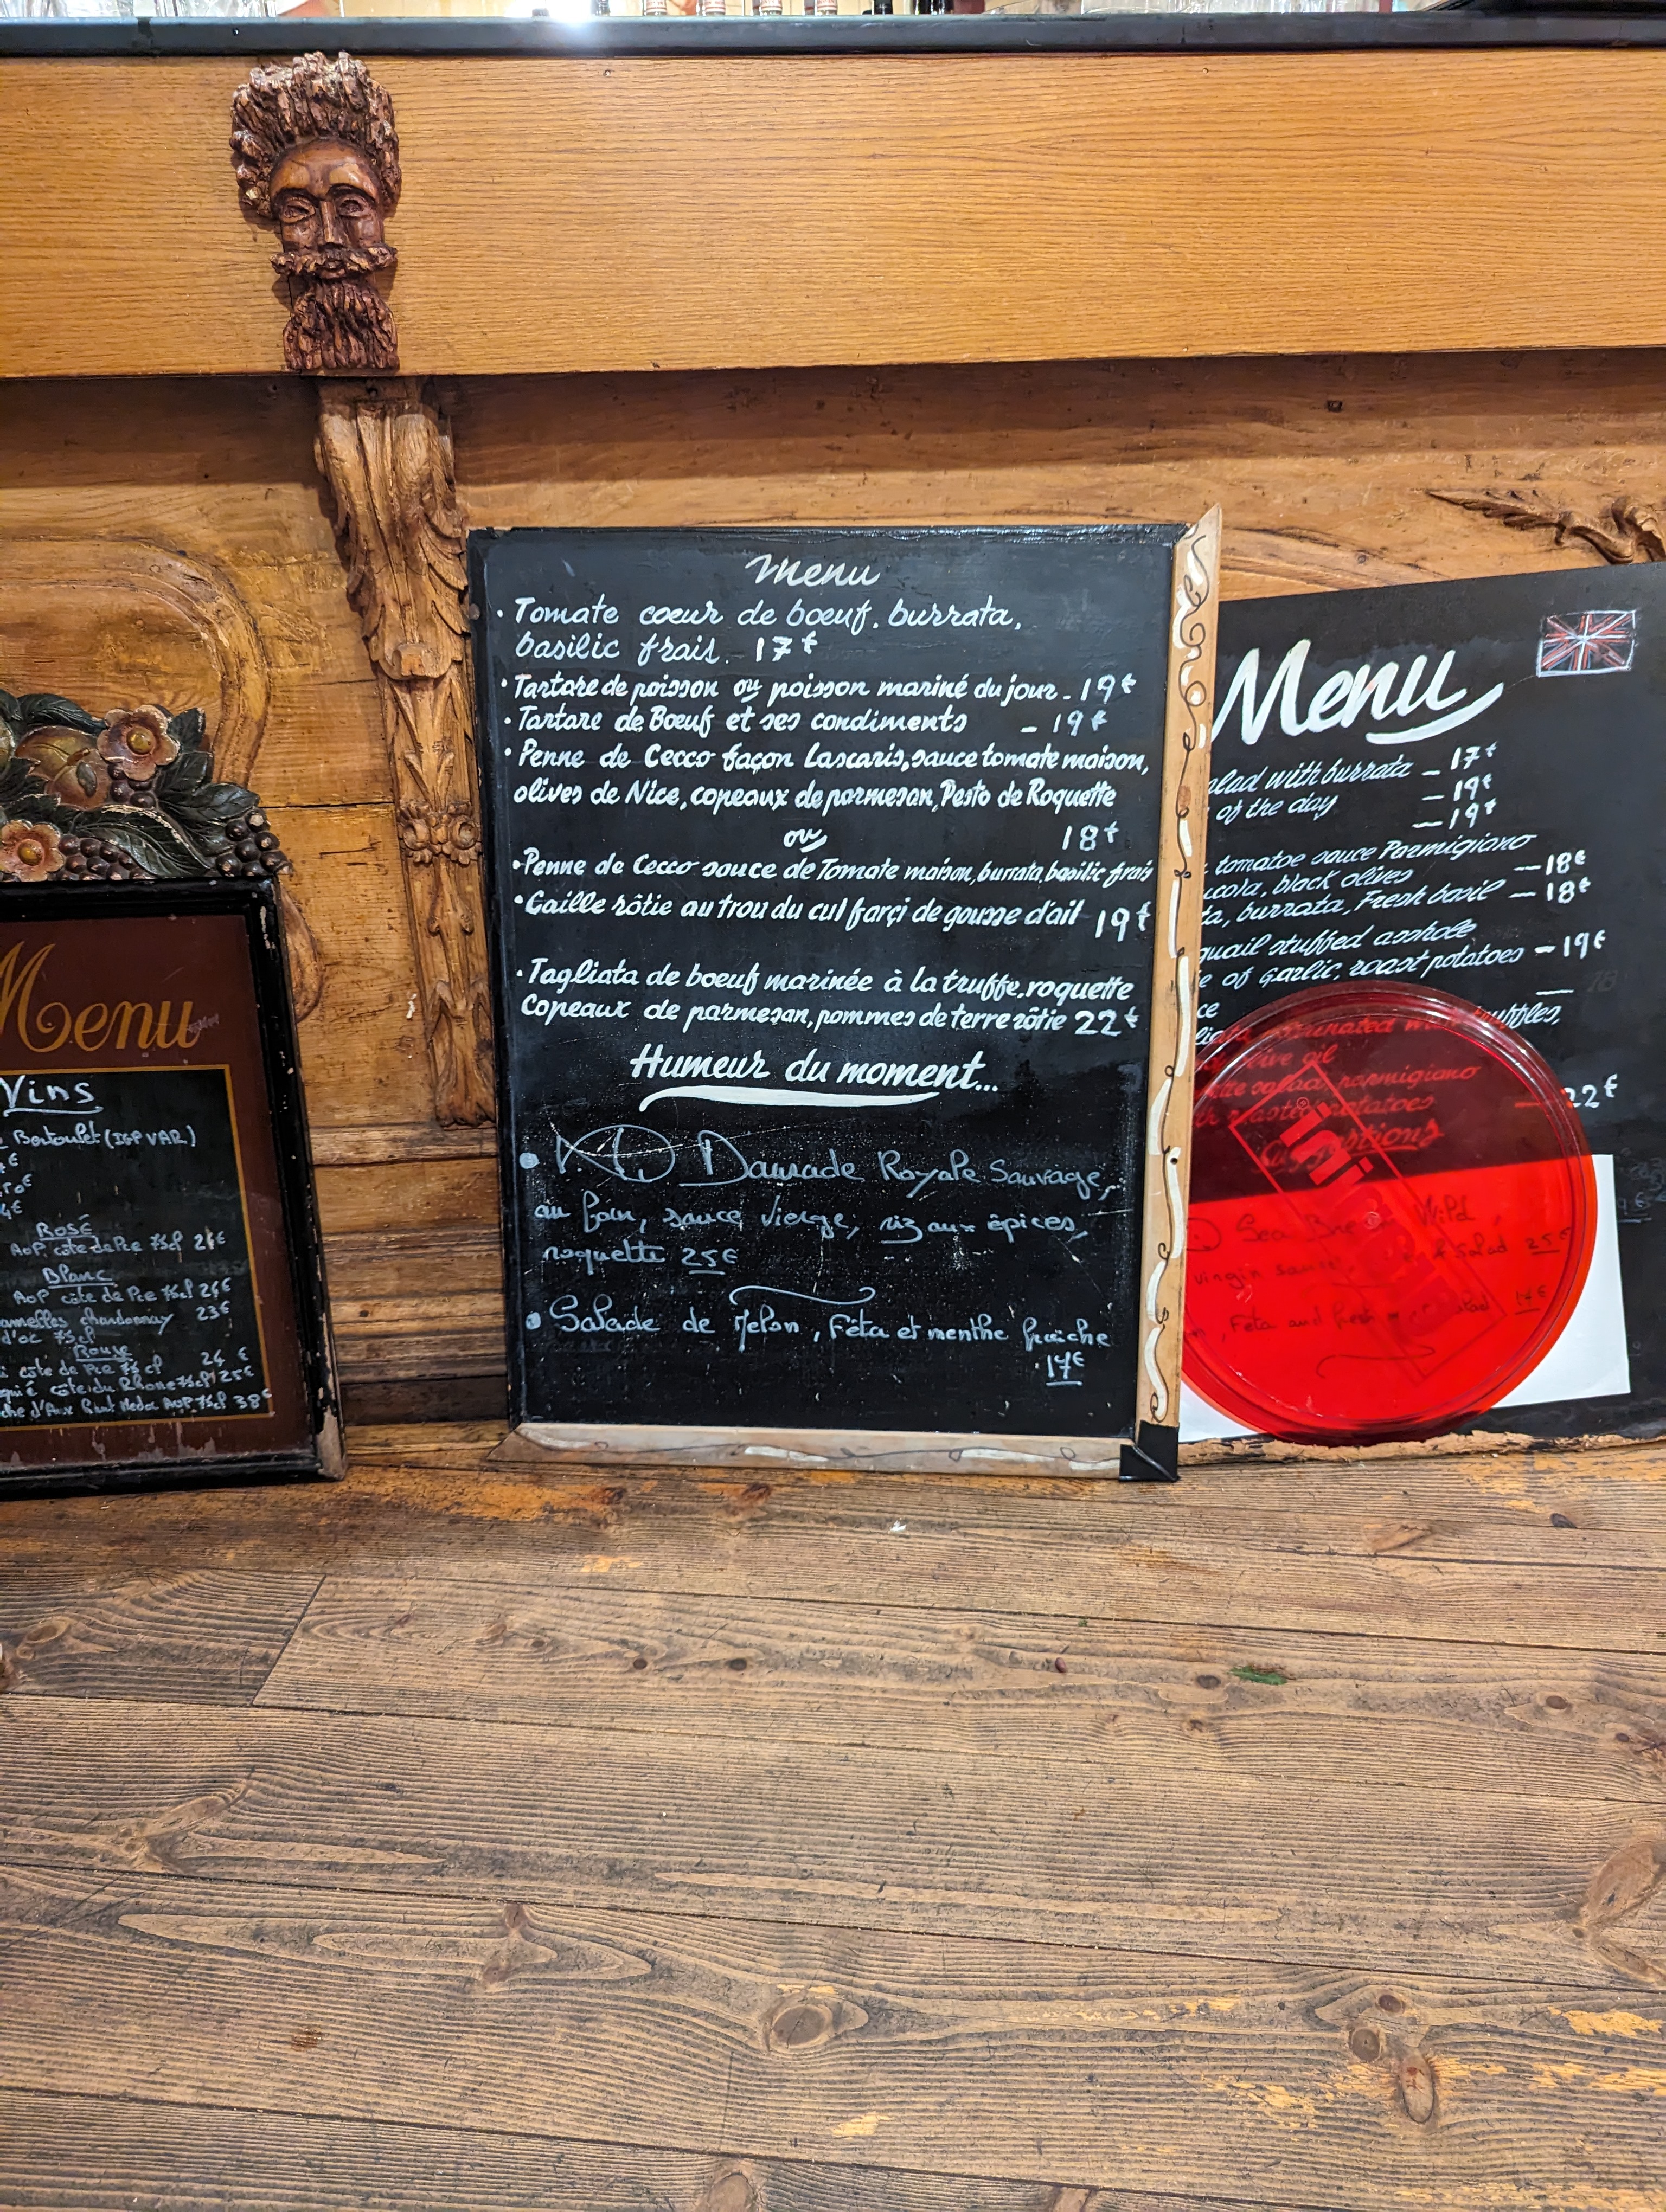 Menu
• Tomate coeur de boeuf, burrata,
basilic frais. 17€
• Tartare de poisson ou poisson mariné du jour - 19€
• Tartare de Boeuf et ses condiments - 19€
• Penne de Cecco façon Lascaris, sauce tomate maison,
olives de Nice, copeaux de parmesan, Pesto de Roquette
ou 18€
• Penne de Cecco sauce de Tomate maison, burrata, basilic frais
• Caille rôtie au trou du cul farçi de gousse d'ail 19€
• Tagliata de boeuf marinée à la truffe, roquette
Copeaux de parmesan, pommes de terre rôtie 22€
Humeur du moment...
• Daurade Royale Sauvage,
au four, sauce vierge, riz aux épices,
roquette 25€
• Salade de Melon, Féta et menthe fraiche
17€
Menu
Vins
(IGP VAR)
Rosé
AOP côte de Pce 75cl 26€
Blanc
AOP côte de Pce 75cl 26€
chardonnay 23€
d'oc 75cl
Rouge
côte de Pce 75cl 24€
côte du Rhone 75cl 25€
AOP 75cl 38€
Menu
with burrata - 17€
of the day - 19€
- 19€
tomatoe sauce Parmigiano
black olives - 18€
burrata, Fresh basil - 18€
quail stuffed asshole
of garlic, roast potatoes - 19€
truffles,
oil
salad, parmigiano
potatoes 22€
Sea Wild
salad 25€
virgin sauce
Feta and fresh 17€